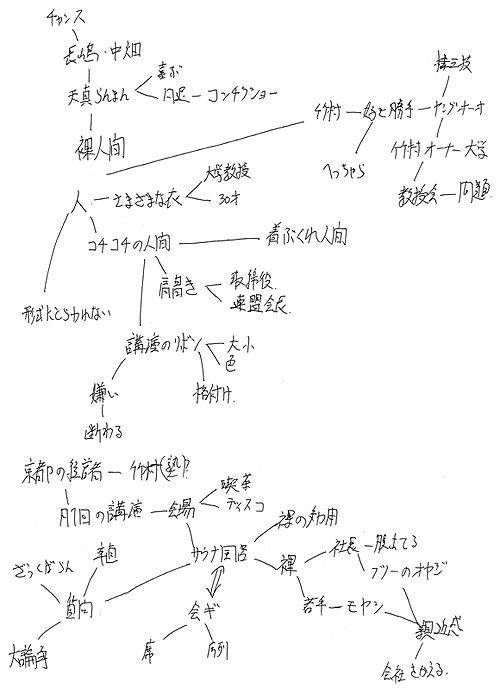 チャンス
長嶋・中畑
天真らんまん
喜ぶ
コンチクショー
裸人間
竹村
勝手
へっちゃら
竹村オーナー大学
教授会
問題
人
さまざまな衣
大学教授
30才
コチコチの人間
着ぶくれ人間
肩書き
取締役
連盟会長
形式にこだわらない
講演のリボン
大小
色
格付け
嫌い
断わる
京都の経営者
竹村(塾)
月1回の講演
会場
喫茶
ディスコ
サウナ風呂
裸の効用
裸
社長
フツーのオヤジ
若手
モヤシ
親近感
会社をかえる
率直
ざっくばらん
質問
大論争
会ギ
席
序列